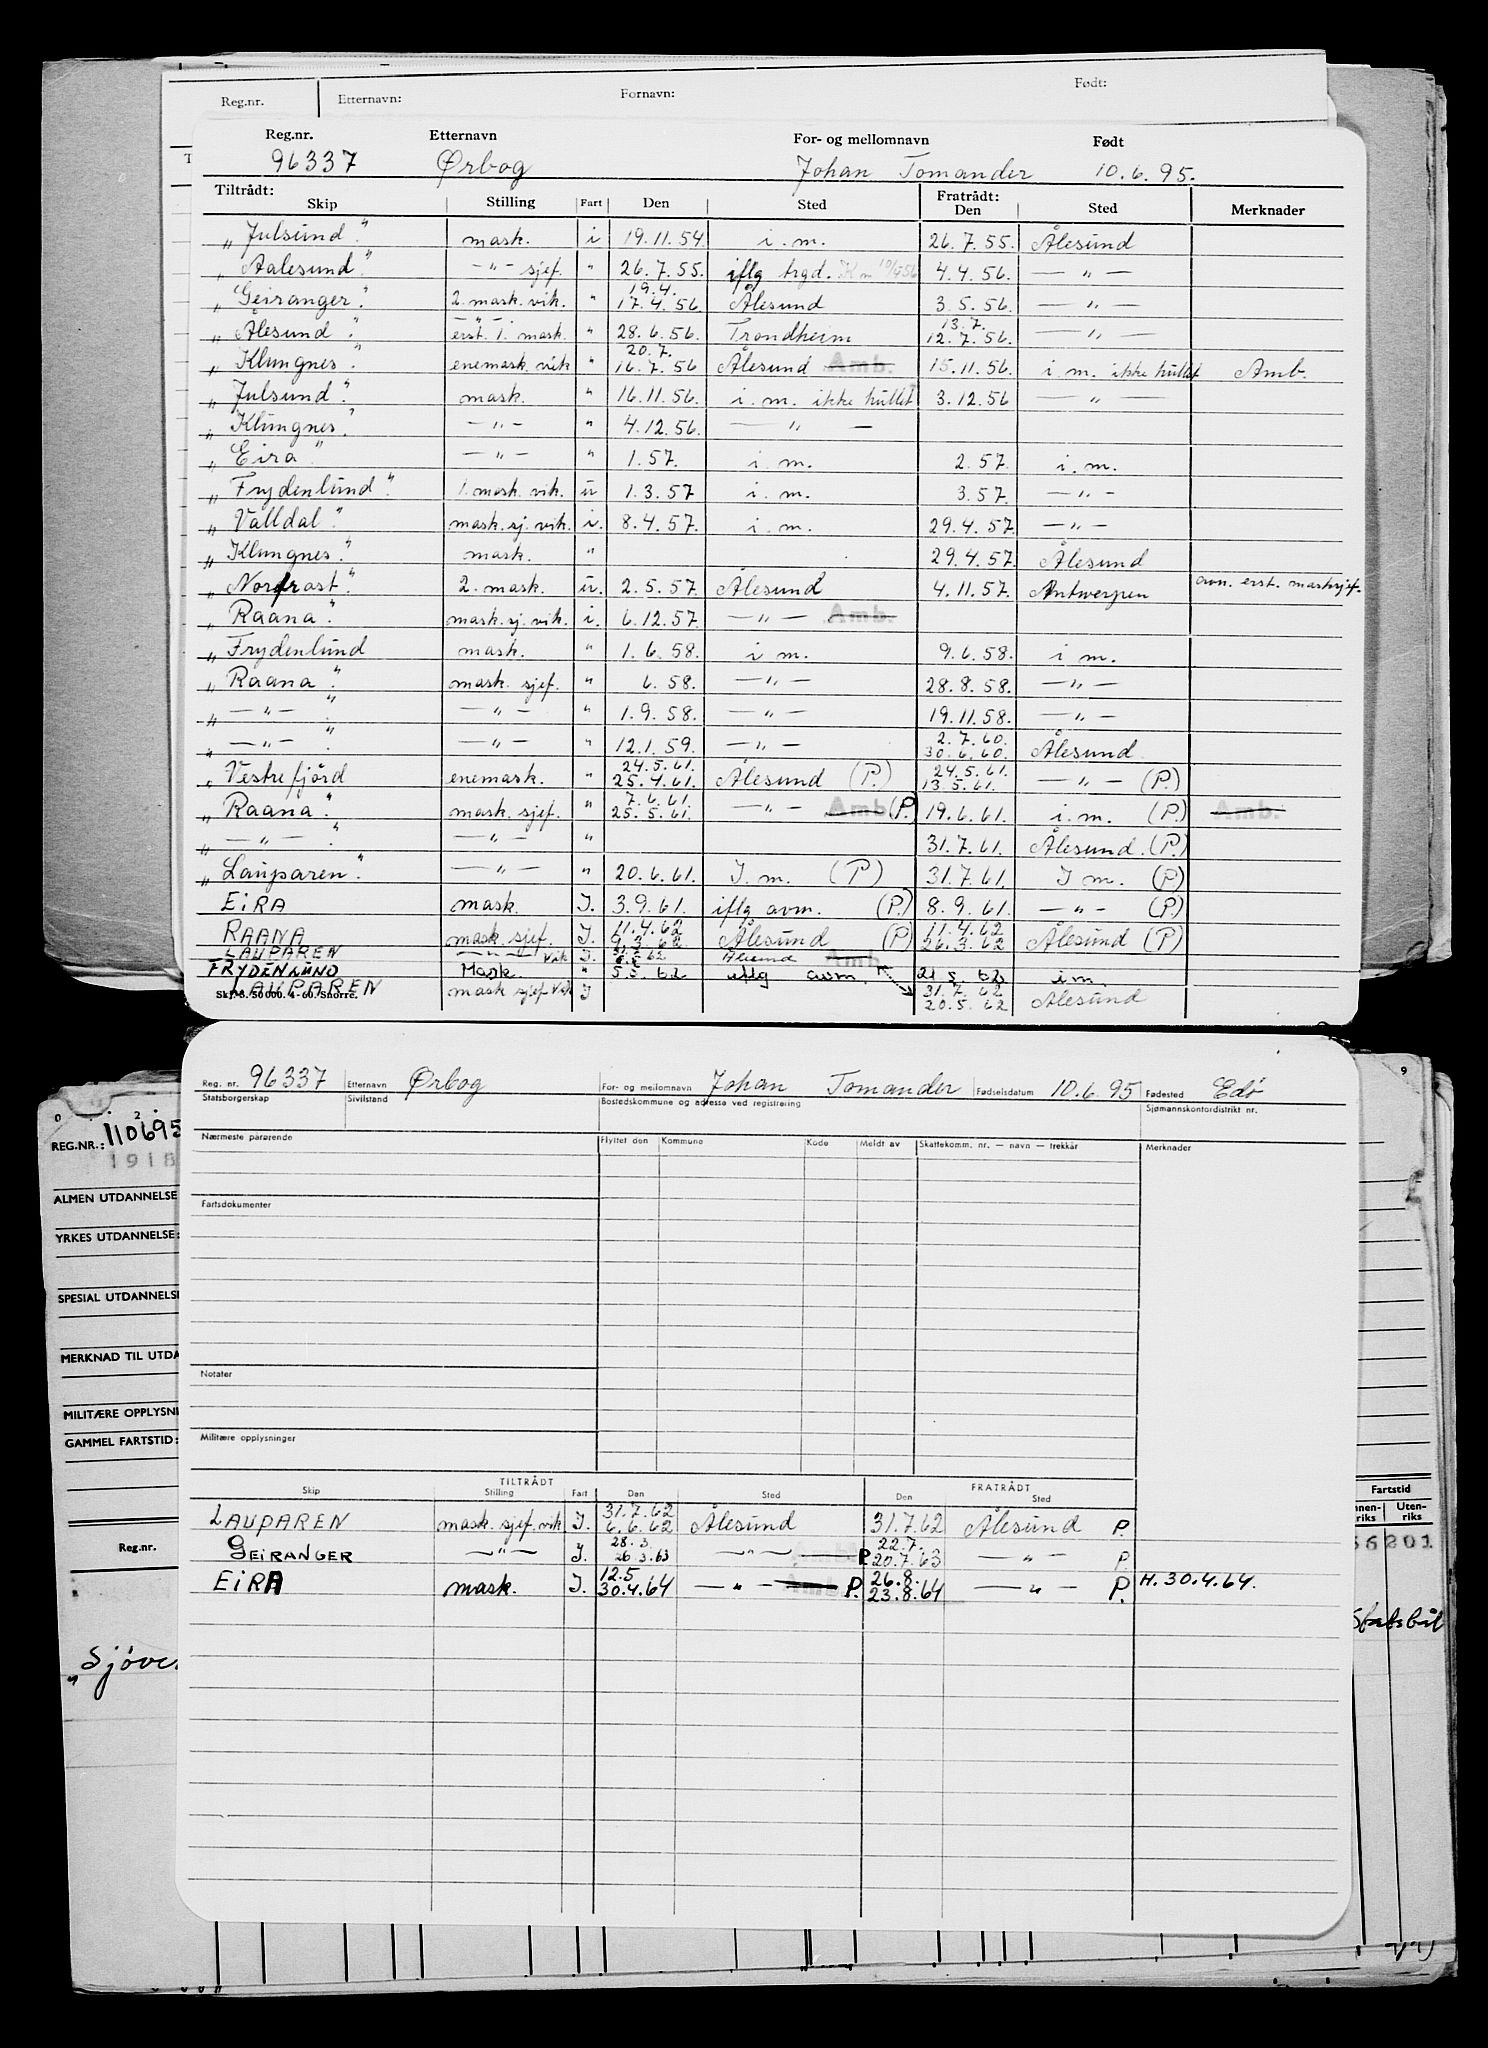 Reg.nr. Etternavn: Fornavn: Født:
Reg.nr. Etternavn For- og mellomnavn Født
96337 Ørbog Johan Tomander 10.6.95.
Tiltrådt: Fratrådt:
Skip Stilling Fart Den Sted Den Sted Merknader
„Julsund." mask. i 19.11.54. i.m. 26.7.55. Ålesund
„Aalesund." —"— sjef. " 26.7.55. iflg hrgd. 4.4.56. —"—
„Geiranger." 2. mask. vik. " 19.4. 17.4.56. Ålesund 3.5.56. —"—
„Ålesund." —"— erst. 1. mask. " 28.6.56. Trondheim 13.7. 12.7.56. —"—
„Klungnes." enemask. vik " 20.7. 16.7.56 Ålesund Amb. 15.11.56. i.m. ikke hullet Amb.
„Julsund." mask. " 16.11.56. i.m. ikke hullet 3.12.56 —"—
„Klungnes." —"— " 4.12.56. —"—
„Eira" —"— " 1.57. i.m. 2.57. i.m.
„Frydenlund." 1. mask. vik. u 1.3.57 i.m. 3.57. —"—
„Valldal" mask. sj. vik. i. 8.4.57. i.m. 29.4.57. —"—
„Klungnes." mask. " 29.4.57. Ålesund
„Norfrost." 2. mask. u. 2.5.57. Ålesund 4.11.57. Antwerpen avn. erst. masksjef.
„Raana." mask. sj. vik. i. 6.12.57. —"— Amb.
„Frydenlund mask. " 1.6.58. i m. 9.6.58. i m.
„Raana." mask. sjef. " 6.58. —"— 28.8.58. —"—
„—"—" —"— " 1.9.58. —"— 19.11.58. —"—
„—"—." —"— " 12.1.59. —"— 2.7.60. 30.6.60. Ålesund
„Vestrefjord enemask. " 24.5.61. 25.4.61. Ålesund (P.) 24.5.61. 13.5.61. —"— (P.)
„Raana." mask. sjef. " 7.6.61. 25.5.61. —"— Amb (P.) 19.6.61. i.m. (P.) Amb.
„—"—." —"— " 31.7.61. Ålesund. (P.)
„Lauparen." —"— " 20.6.61. I.m. (P) 31.7.61. I m. (P)
EIRA mask. I. 3.9.61. iflg avm. (P.) 8.9.61. —"— (P.)
RAANA mask. sjef. I. 11.4.62 9.3.62. Ålesund (P) 11.4.62 26.3.62 Ålesund (P)
LAUPAREN —"— Vik I. Ålesund Amb
FRYDENLUND Mask. " 5.5.62 iflg avm. 21.5.62 i m.
LAUPAREN mask sjef Vik I 31.7.62 20.5.62 Ålesund
Skj. 8. 50 000. 4-60. Snorre.
Reg. nr. 96337 Etternavn Ørbog For- og mellomnavn Johan Tomander Fødselsdatum 10.6.95 Fødested Edø
Statsborgerskap Sivilstand Bostedskommune og adressa ved registrering Sjømannskontordistrikt nr.
Nærmeste pårørende Flyttet den Kommune Kode Meldt av Skattekomm. nr. — navn — trekkår Merknader
Fartsdokumenter
Notater
Militære opplysninger
TILTRÅDT FRATRÅDT
Skip Stilling Fart Den Sted Den Sted
LAUPAREN mask. sjef. vik I. 31.7.62 6.6.62 Ålesund 31.7.62 Ålesund P.
GEIRANGER —"— I. 28.3. 26.3.63 —"— Amb P 22.7. 20.7.63 —"— P
EIRA mask. I. 12.5 30.4.64 —"— Amb P. 26.8. 23.8.64 —"— P. H. 30.4.64.
0 . 2 9
REG.NR.: 110695
1918
ALMEN UTDANNELSE
YRKES UTDANNELSE:
SPESIAL UTDANNELSE
MERKNAD TIL UTDA
MILITÆRE OPPLYSNI
GAMMEL FARTSTID:
Reg.nr.
„Sjöve.
Fartstid
nnen-riks Uten-riks
56201
Statsbåt